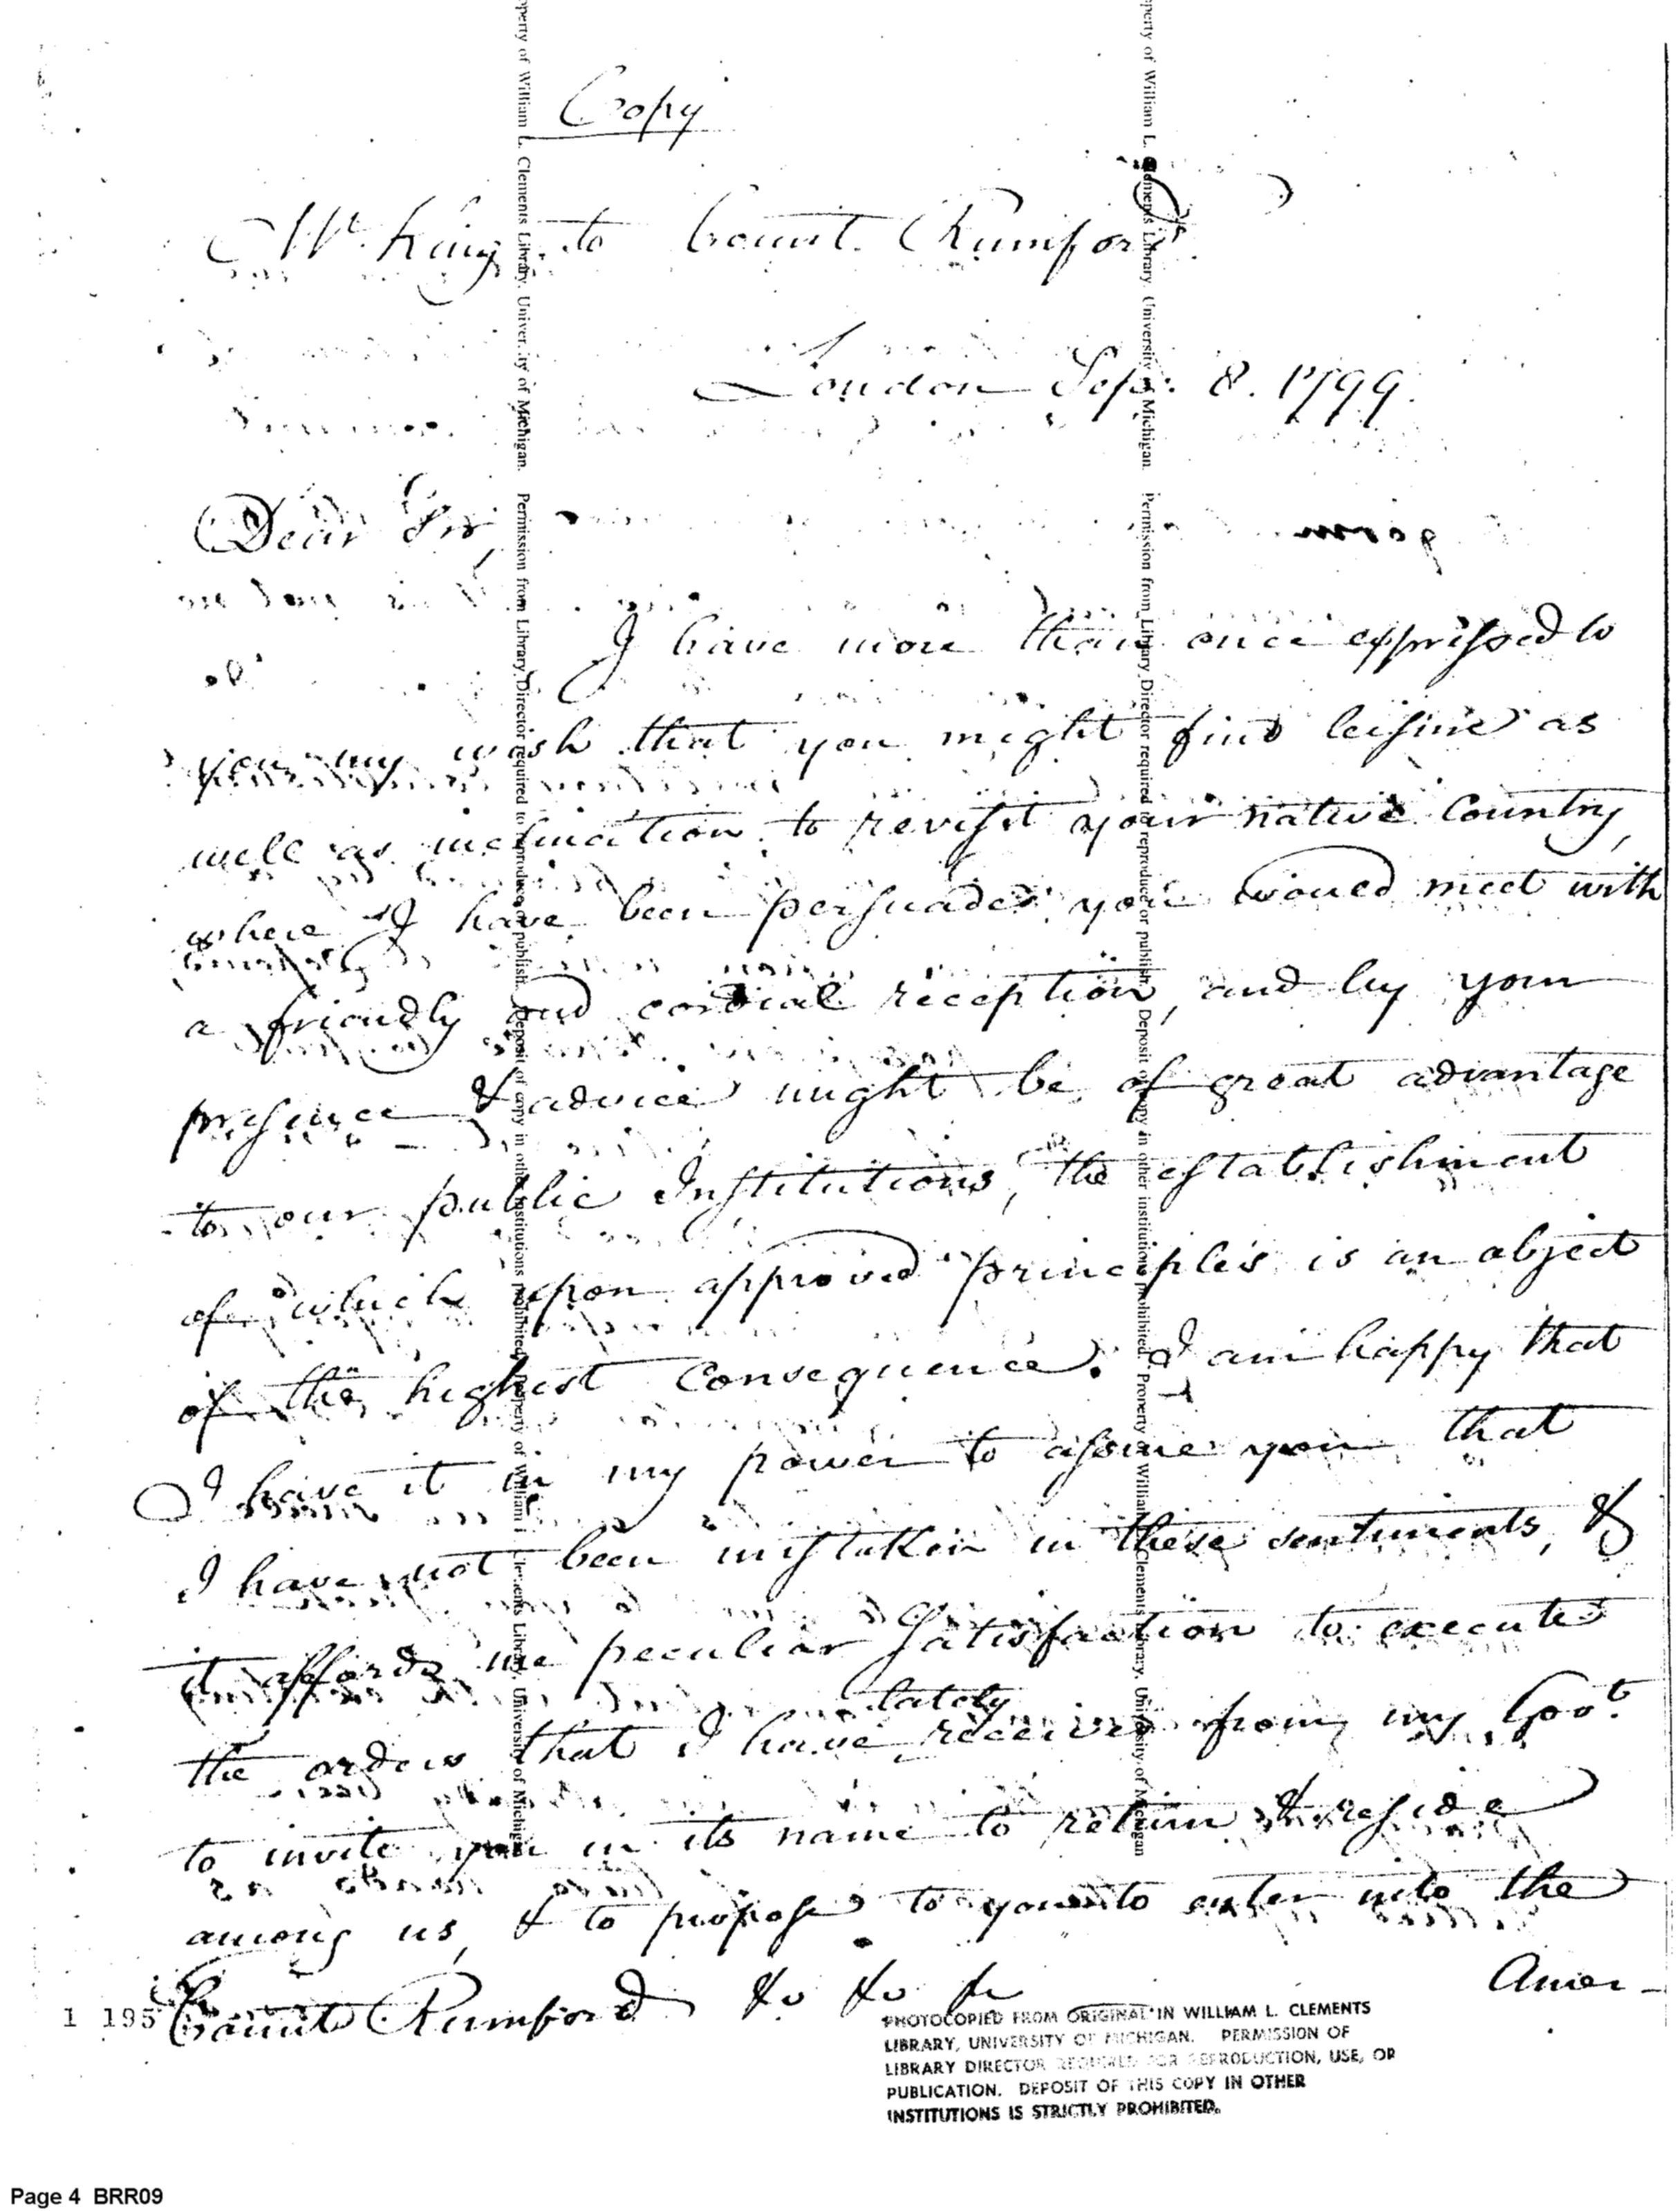 Copy
Mr. King to Count Rumford
London Sepr. 8. 1799.
Dear Sir,
I have more than once expressed to
you my wish that you might find leisure as
well as inclination to revisit your native Country,
where I have been persuaded you would meet with
a friendly and cordial reception, and by your
presence & advice might be of great advantage
to our public Institutions, the establishment
of which upon approved principles is an object
of the highest Consequence. I am happy that
I have it in my power to assure you that
I have not been mistaken in these sentiments, &
it affords me peculiar Satisfaction to execute
lately
the orders that I have received from my Govt.
to invite you in its name to return & reside
among us, & to propose to you to enter into the
Amer-
Count Rumford &c &c &c
1 195
PHOTOCOPIED FROM ORIGINAL IN WILLIAM L. CLEMENTS
LIBRARY, UNIVERSITY OF MICHIGAN. PERMISSION OF
LIBRARY DIRECTOR REQUIRED FOR REPRODUCTION, USE, OR
PUBLICATION. DEPOSIT OF THIS COPY IN OTHER
INSTITUTIONS IS STRICTLY PROHIBITED.
Property of William L. Clements Library, University of Michigan. Permission from Library Director required to reproduce or publish. Deposit of copy in other institutions prohibited. Property of William L. Clements Library, University of Michigan
Property of William L. Clements Library, University of Michigan. Permission from Library Director required to reproduce or publish. Deposit of copy in other institutions prohibited. Property of William L. Clements Library, University of Michigan
Page 4 BRR09